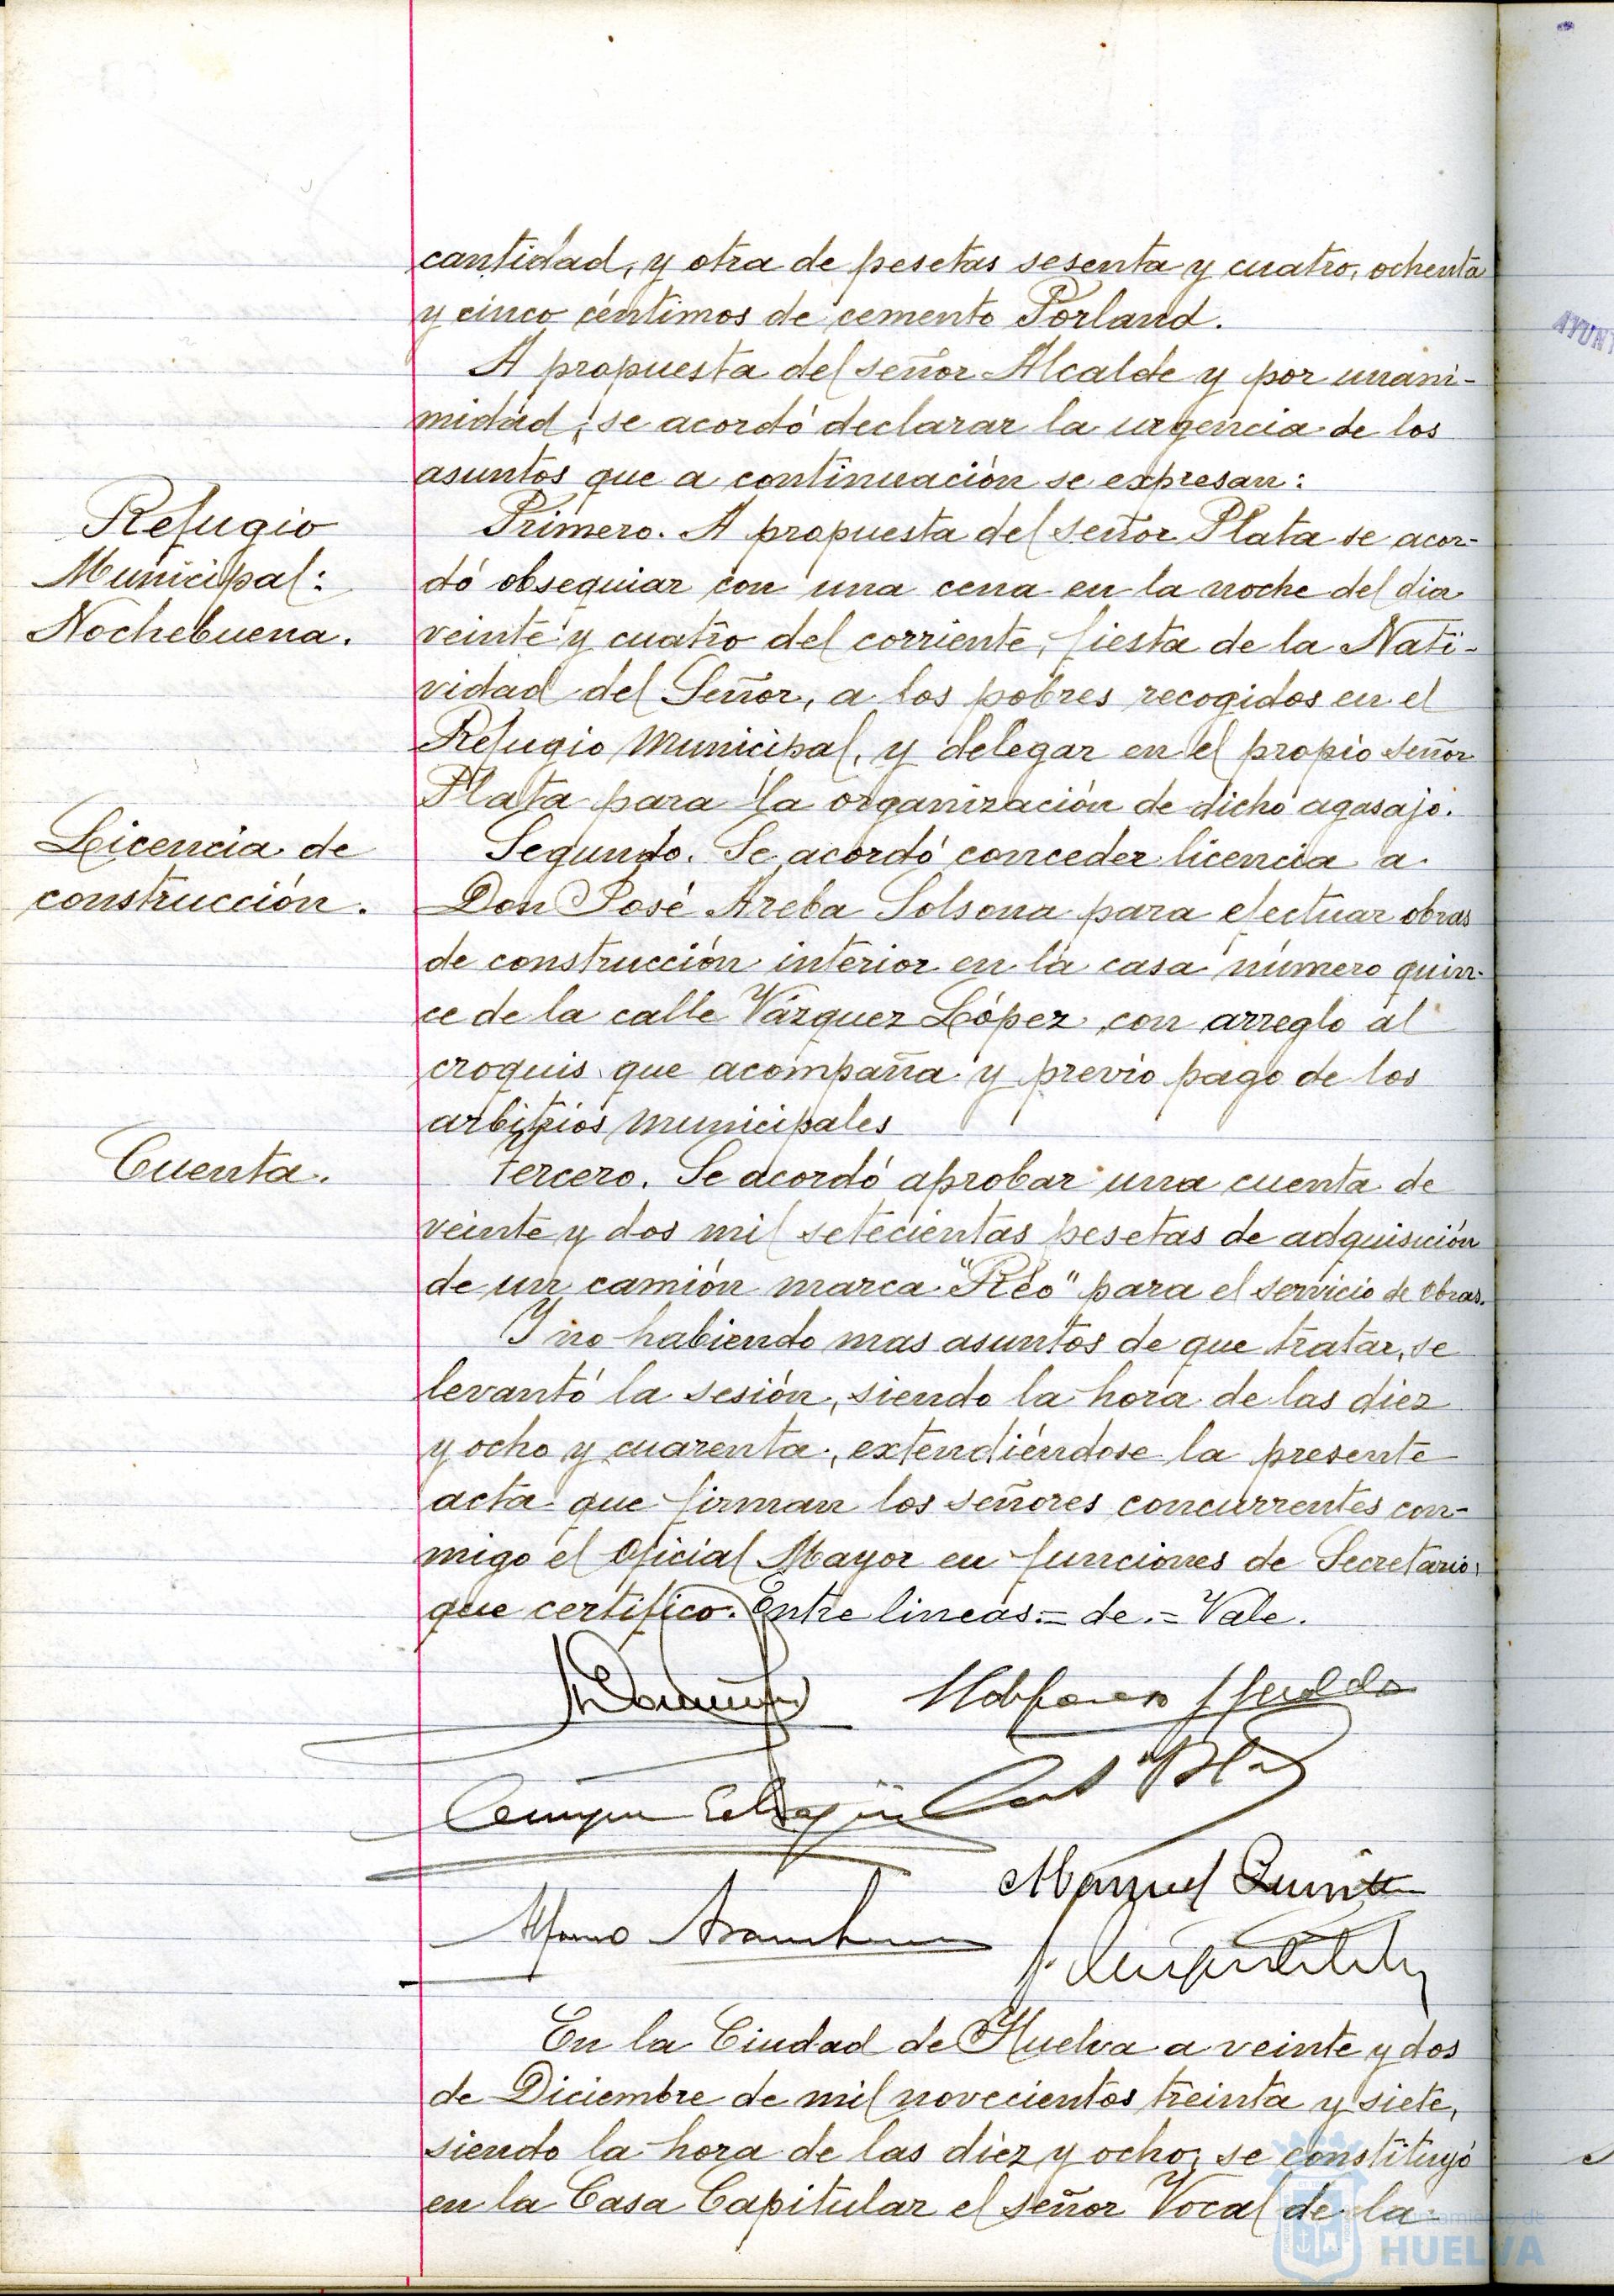 cantidad, y otra de pesetas sesenta y cuatro, ochenta
y cinco céntimos de cemento Porland.
A propuesta del señor Alcalde y por unani-
midad, se acordó declarar la urgencia de los
asuntos que a continuación se expresan:
Refugio
Municipal:
Nochebuena.
Primero. A propuesta del señor Plata se acor-
dó obsequiar con una cena en la noche del dia
veinte y cuatro del corriente, fiesta de la Nati-
vidad del Señor, a los pobres recogidos en el
Refugio Municipal, y delegar en el propio señor
Plata para la organización de dicho agasajo.
Licencia de
construcción.
Segundo. Se acordó conceder licencia a
Don José Areba Solsona para efectuar obras
de construcción interior en la casa número quin-
ce de la calle Vázquez López, con arreglo al
croquis que acompaña y previo pago de los
arbitrios municipales
Cuenta.
Tercero. Se acordó aprobar una cuenta de
veinte y dos mil setecientas pesetas de adquisición
de un camión marca "Réo" para el servicio de Obras.
Y no habiendo mas asuntos de que tratar, se
levantó la sesión, siendo la hora de las diez
y ocho y cuarenta, extendiéndose la presente
acta que firman los señores concurrentes con-
migo el Oficial Mayor en funciones de Secretario,
que certifico. Entre lineas.= de.= Vale.
Manuel
En la Ciudad de Huelva a veinte y dos
de Diciembre de mil novecientos treinta y siete,
siendo la hora de las diez y ocho, se constituyó
en la Casa Capitular el señor Vocal de la
Ayuntamiento de
HUELVA
AYUNT